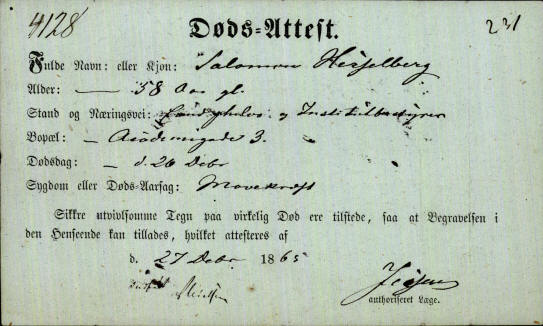 4128
231
Døds=Attest.
Fulde Navn: eller Kjøn: Salomon Hesselberg
Alder: — 58 Aar gl.
Stand og Næringsvei: og Institutbestyrer
Bopæl: — 3.
Dødsdag: — d. 26 Debr
Sygdom eller Døds=Aarsag: Mavekræft
Sikkre utvivlsomme Tegn paa virkelig Død ere tilstede, saa at Begravelsen i
den Henseende kan tillades, hvilket attesteres af
d. 27 Debr 1865
authoriseret Læge.